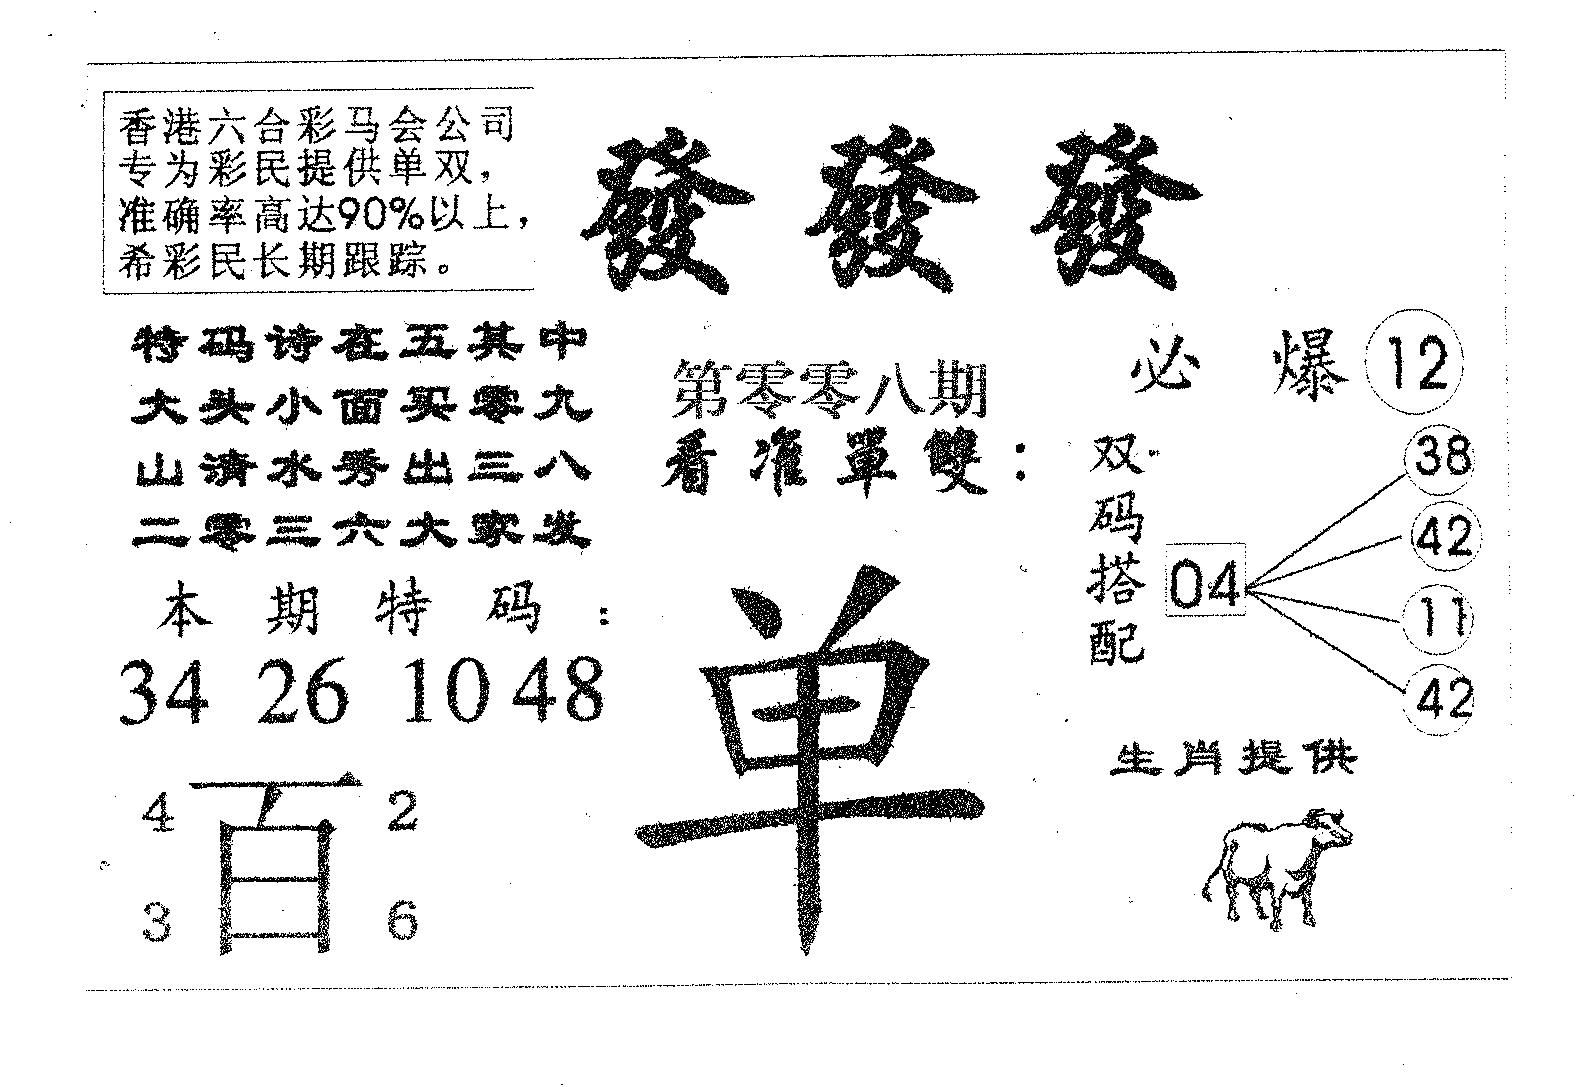 香港六合彩马会公司
专为彩民提供单双，
准确率高达90%以上，
希彩民长期跟踪。
發發發
特码诗在五其中
大头小面买零九
山清水秀出三八
二零三六大家发
本期特码：
34 26 10 48
4 百 2
3 6
第零零八期
看准單雙：
单
必爆 12
双码搭配
04
38
42
11
42
生肖提供